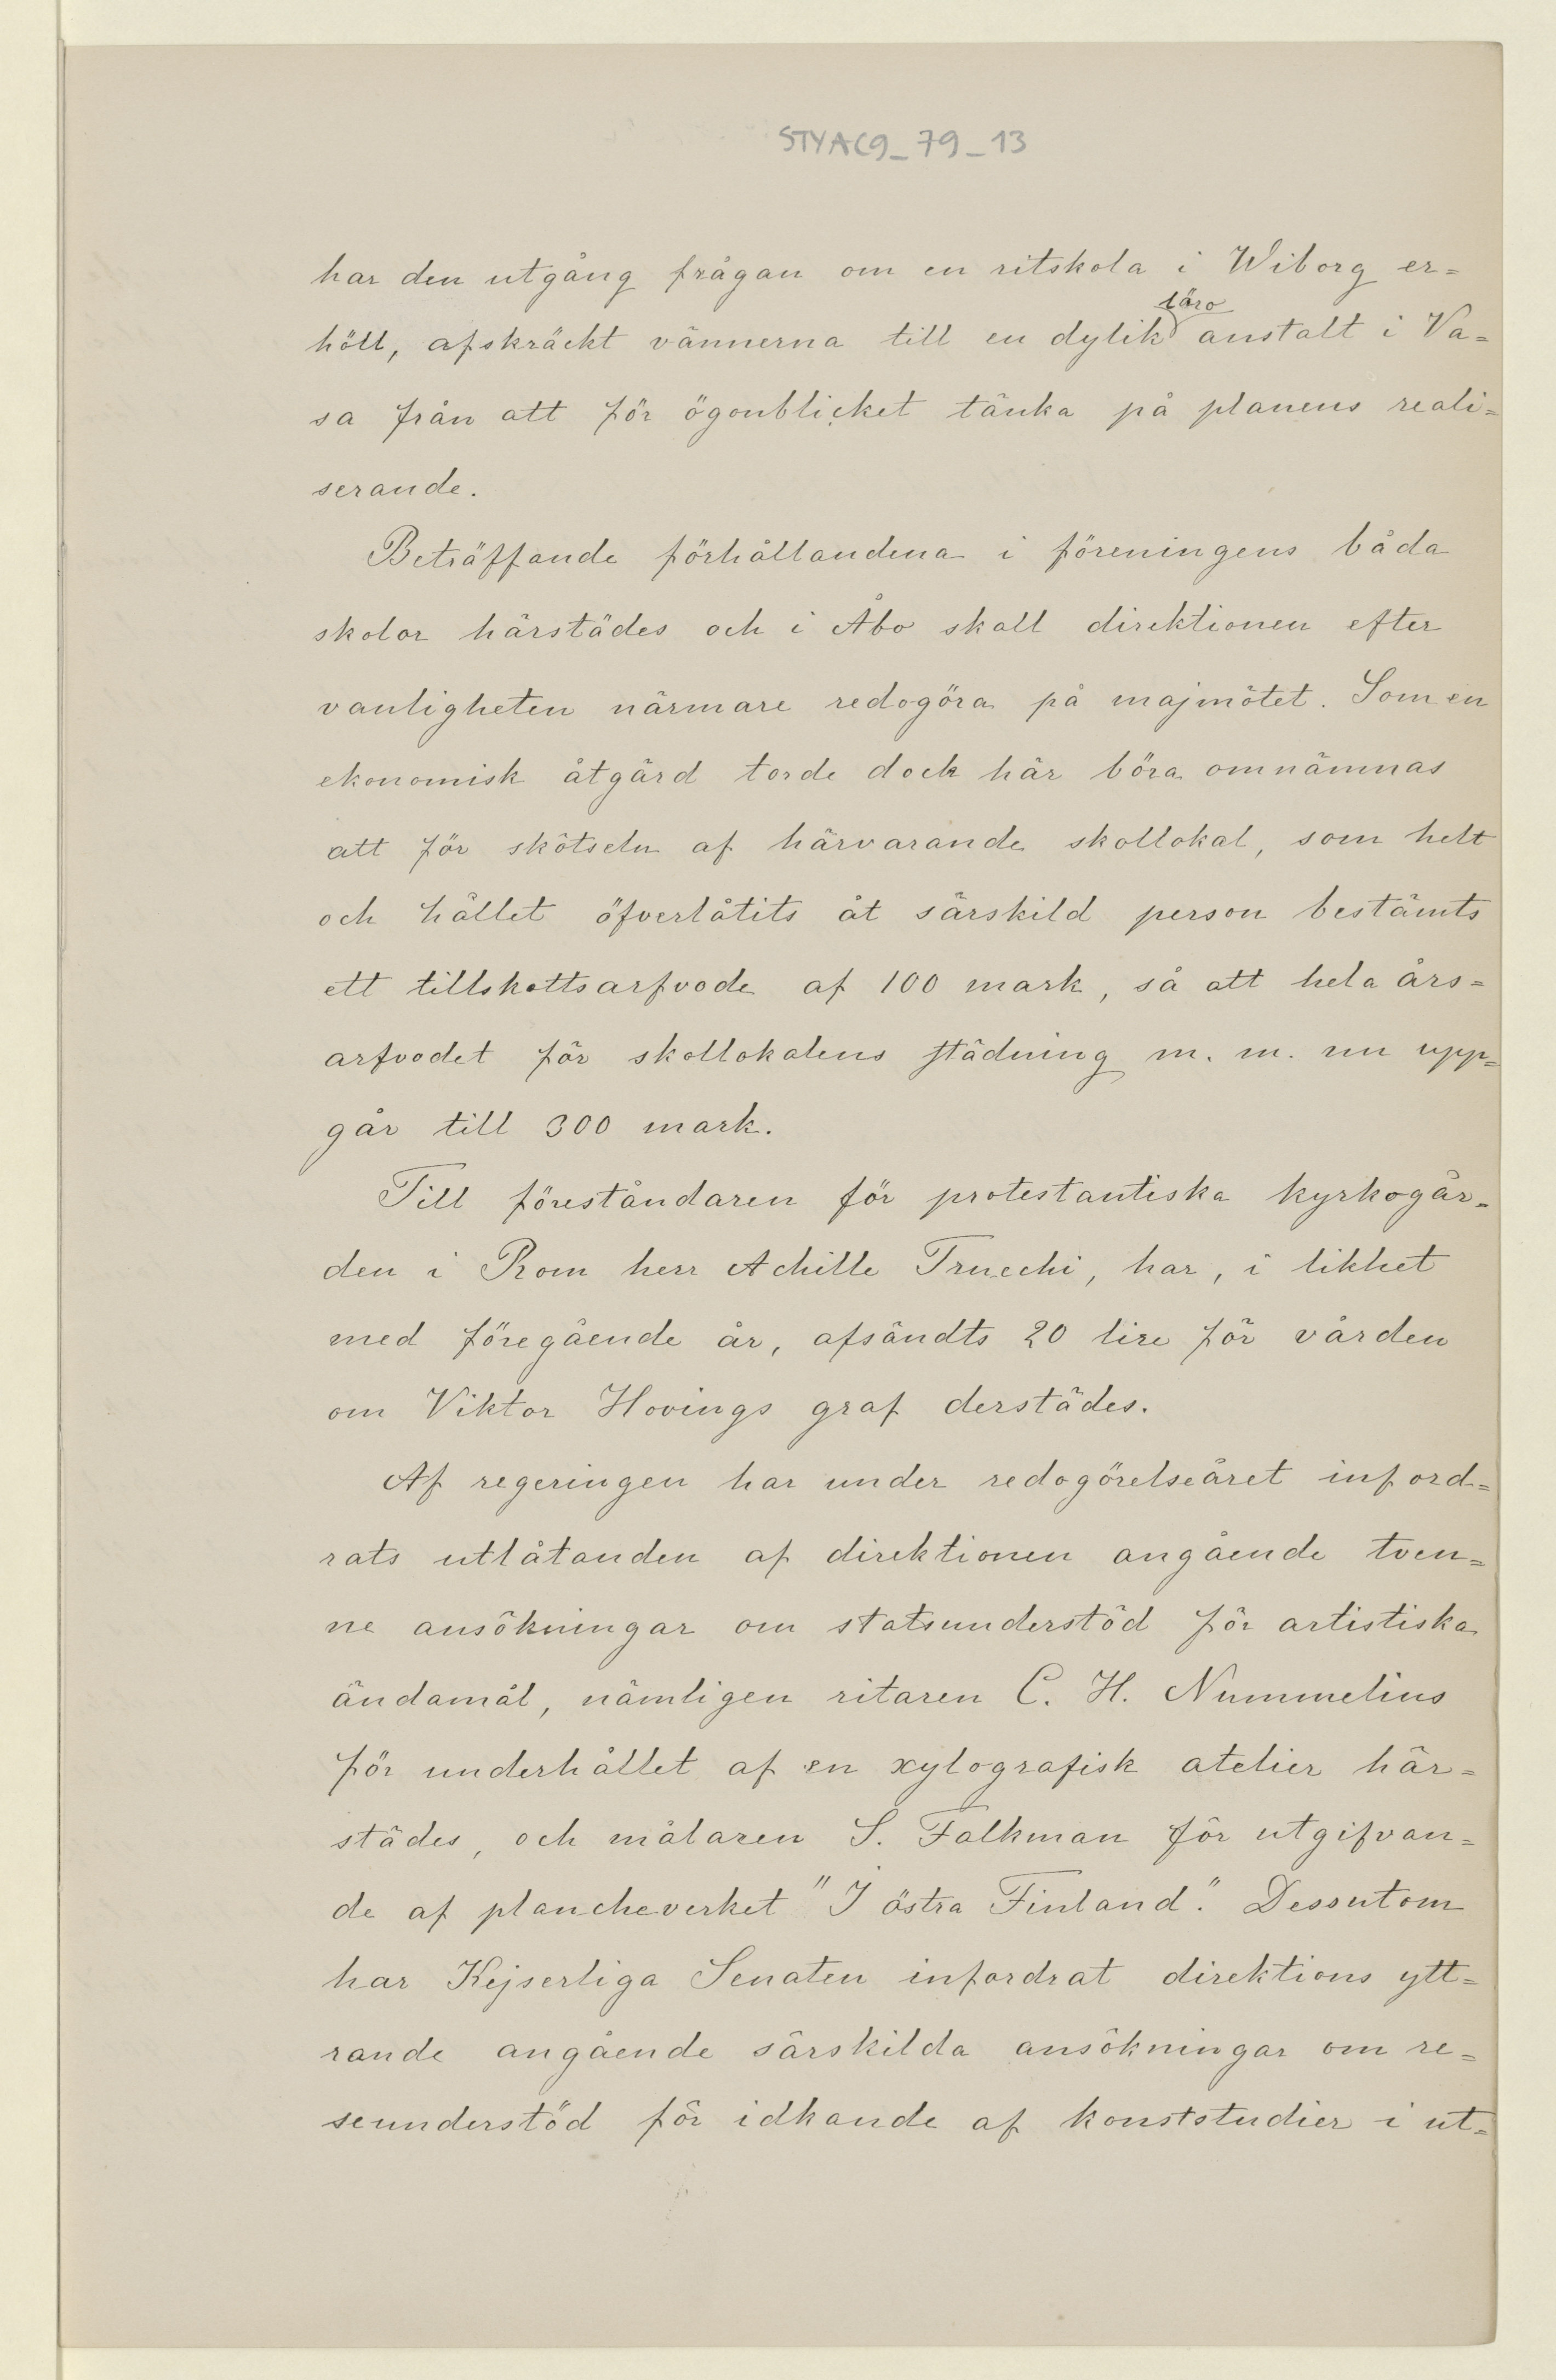 STYAC9_79_13
har den utgång frågan om en ritskola i Wiborg er=
höll, afskräckt vännerna till en dylik läro anstalt i Va=
sa från att för ögonblicket tänka på planens reali=
serande.
Beträffande förhållandena i föreningens båda
skolor härstädes och i Åbo skall direktionen efter
vanligheten närmare redogöra på majmötet. Som en
ekonomisk åtgärd torde dock här böra omnämnas
att för skötseln af härvarande skollokal, som helt
och hållet öfverlåtits åt särskild person bestämts
ett tillskottsarfvode af 100 mark, så att hela års=
arfvodet för skollokalens städning m. m. nu upp=
går till 300 mark.
Till föreståndaren för protestantiska kyrkogår=
den i Rom herr Achille Trucchi, har, i likhet
med föregående år, afsändts 20 lire för vården
om Viktor Hovings graf derstädes.
Af regeringen har under redogörelseåret inford=
rats utlåtanden af direktionen angående tven=
ne ansökningar om statsunderstöd för artistiska
ändamål, nämligen ritaren C. H. Nummelius
för underhållet af en xylografisk atelier här=
städes, och målaren S. Falkman för utgifvan=
de af plancheverket "I östra Finland". Dessutom
har Kejserliga Senaten infordrat direktions ytt=
rande angående särskilda ansökningar om re=
seunderstöd för idkande af konststudier i ut=